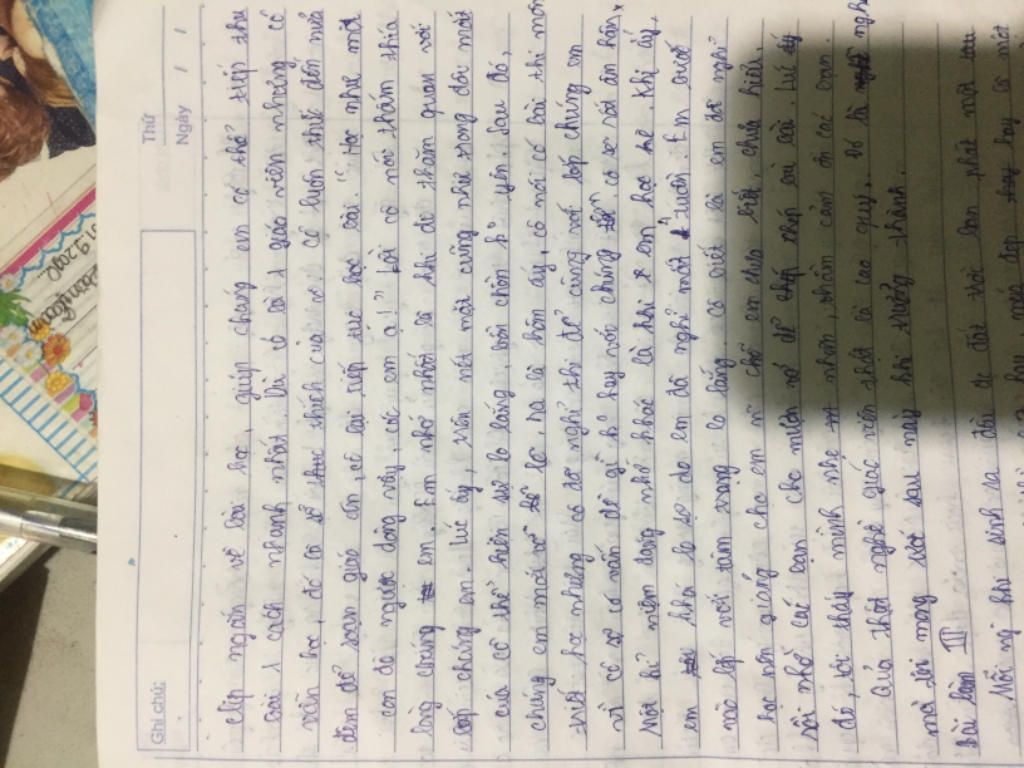 Thứ
Ngày / /
Ghi chú:
clip ngắn về bài học, giúp chúng em có thể tiếp thu
bài 1 cách nhanh nhất. Dù cô là 1 giáo viên nhưng cô
văn học, đó là sở thích của cô. Cô luôn thức đến nửa
đêm để soạn giáo án, cô lại tiếp tục học bài. "Học như một
con đò ngược dòng vậy, các em ạ!" Lời cô nói thấm thía
lòng chúng em. Em nhớ nhất là khi dự thăm quan với
lớp chúng em. Lúc ấy, trên nét mặt cũng như trong đôi mắt
của cô thể hiện sự lo lắng, bồn chồn k yên. Sau đó,
chúng em mới vỡ lẽ, ra là hôm ấy, cô mới có bài thi môn
triết học nhưng cô đã nghỉ thi để cùng với lớp chúng em
vì cô sợ có vấn đề gì k hay với chúng em cô sẽ rất ân hận.
Một kỉ niệm đáng nhớ khác là khi em học hè. Khi ấy,
em khá lo sợ do em đã nghỉ mất 1 tuần. Em bước
vào lớp với tâm trạng lo lắng. Cô biết là em đã nghỉ
học nên giảng cho em những chỗ em chưa biết, chưa hiểu,
rồi nhờ các bạn cho mượn vở để chép lại bài. Lúc
đó, tôi thấy mình nhẹ nhõm, thầm cảm ơn các bạn.
Quả thật nghề giáo viên thật là cao quý. Đó là nghề
mà tôi mong ước sau này khi trưởng thành.
Bài làm III
Mỗi người khi sinh ra đâu được đất trời ban phát một
hay, nét đẹp hay có một